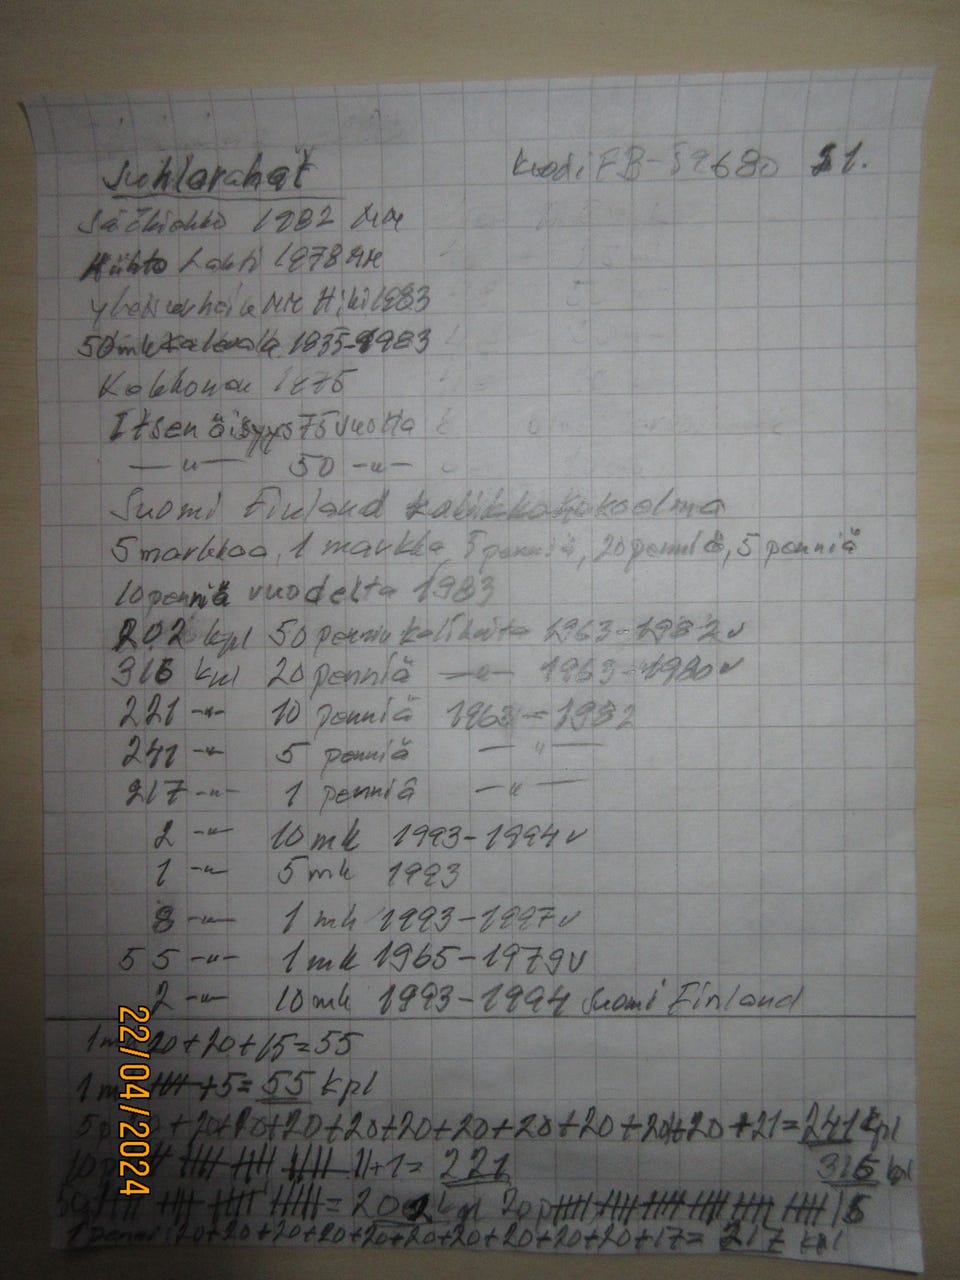 Juhlarahat Koodi FB-59680 S1.
Jääkiekko 1982 MM
Hiihto Lahti 1978 MM
yleisurheilu MM Hiki 1983
50 mk Kalevala 1835-1983
Kekkonen 1975
Itsenäisyys 75 vuotta
—"— 50 -"-
Suomi Finland kolikkokokoelma
5 markkaa, 1 markka, 5 penniä, 20 penniä, 5 penniä
10 penniä vuodelta 1983
202 kpl 50 penniä kolikoita 1963-1982 v
316 kpl 20 penniä —"— 1963-1980 v
221 -"- 10 penniä 1963-1982
241 -"- 5 penniä —"—
217 -"- 1 penniä —"—
2 -"- 10 mk 1993-1994 v
1 -"- 5 mk 1993
8 -"- 1 mk 1993-1997 v
55 -"- 1 mk 1965-1979 v
2 -"- 10 mk 1993-1994 Suomi Finland
20+20+15=55
+5=55 kpl
+20+20+20+20+20+20+20+20+20+20+21=241 kpl
11+1=221 316 kpl
=202 kpl 20p 16
1 penni 20+20+20+20+20+20+20+20+20+20+17=217 kpl
22/04/2024